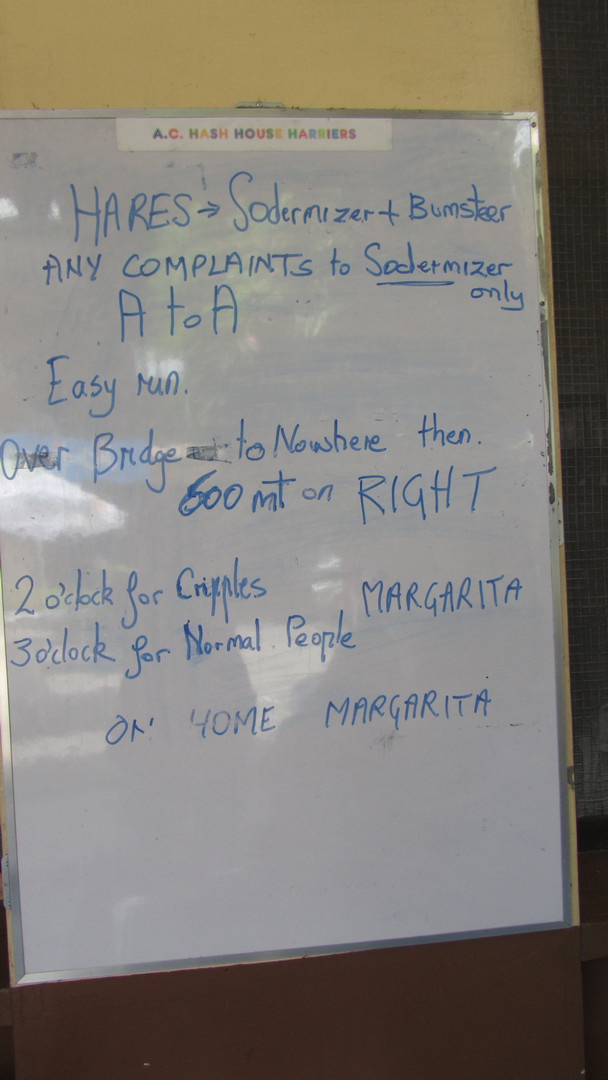 A.C. HASH HOUSE HARRIERS
HARES → Sodermizer + Bumsteer
ANY COMPLAINTS to Sodermizer
only
A to A
Easy run.
Over Bridge to Nowhere then.
600 mt on RIGHT
2 o'clock for Cripples MARGARITA
3 o'clock for Normal People
ON HOME MARGARITA